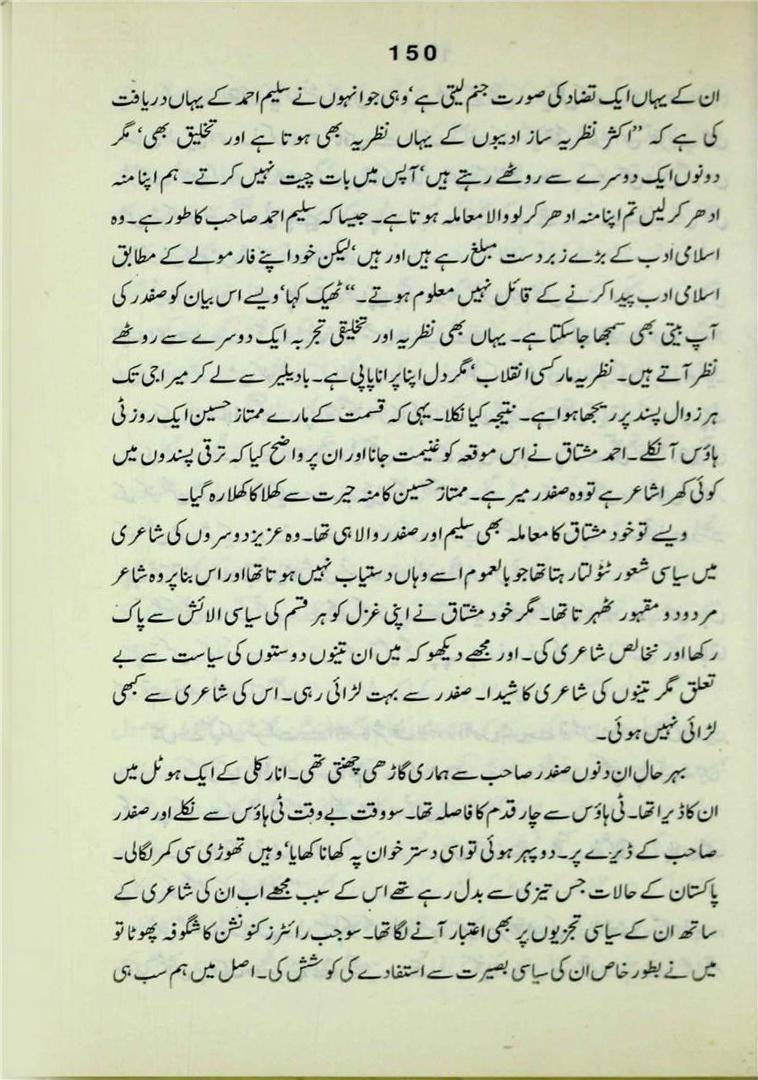 150
ان کے یہاں ایک تضاد کی صورت جنم لیتی ہے‘ وہی جو انہوں نے سلیم احمد کے یہاں دریافت
کی ہے کہ ’’اکثر نظریہ ساز ادیبوں کے یہاں نظریہ بھی ہوتا ہے اور تخلیق بھی‘ مگر
دونوں ایک دوسرے سے روٹھے رہتے ہیں‘ آپس میں بات چیت نہیں کرتے۔ ہم اپنا منہ
ادھر کر لیں تم اپنا منہ ادھر کر لو والا معاملہ ہوتا ہے۔ جیسا کہ سلیم احمد صاحب کا طور ہے۔ وہ
اسلامی ادب کے بڑے زبردست مبلغ رہے ہیں اور ہیں‘ لیکن خود اپنے فارمولے کے مطابق
اسلامی ادب پیدا کرنے کے قائل نہیں معلوم ہوتے۔‘‘ ٹھیک کہا‘ ویسے اس بیان کو صفدر کی
آپ بیتی بھی سمجھا جا سکتا ہے۔ یہاں بھی نظریہ اور تخلیقی تجربہ ایک دوسرے سے روٹھے
نظر آتے ہیں۔ نظریہ مارکسی انقلاب‘ مگر دل اپنا پرانا پاپی ہے۔ بادیلیر سے لے کر میراجی تک
ہر زوال پسند پر ریجھا ہوا ہے۔ نتیجہ کیا نکلا۔ یہی کہ قسمت کے مارے ممتاز حسین ایک روز ٹی
ہاؤس آ نکلے۔ احمد مشتاق نے اس موقعہ کو غنیمت جانا اور ان پر واضح کیا کہ ترقی پسندوں میں
کوئی کھرا شاعر ہے تو وہ صفدر میر ہے۔ ممتاز حسین کا منہ حیرت سے کھلا کا کھلا رہ گیا۔
ویسے تو خود مشتاق کا معاملہ بھی سلیم اور صفدر والا ہی تھا۔ وہ عزیز دوسروں کی شاعری
میں سیاسی شعور ٹٹولتا رہتا تھا جو بالعموم اسے وہاں دستیاب نہیں ہوتا تھا اور اس بنا پر وہ شاعر
مردود و مقہور ٹھہرتا تھا۔ مگر خود مشتاق نے اپنی غزل کو ہر قسم کی سیاسی الائش سے پاک
رکھا اور نخالص شاعری کی۔ اور مجھے دیکھو کہ میں ان تینوں دوستوں کی سیاست سے بے
تعلق مگر تینوں کی شاعری کا شیدا۔ صفدر سے بہت لڑائی رہی۔ اس کی شاعری سے کبھی
لڑائی نہیں ہوئی۔
بہر حال ان دنوں صفدر صاحب سے ہماری گاڑھی چھنتی تھی۔ انار کلی کے ایک ہوٹل میں
ان کا ڈیرا تھا۔ ٹی ہاؤس سے چار قدم کا فاصلہ تھا۔ سو وقت بے وقت ٹی ہاؤس سے نکلے اور صفدر
صاحب کے ڈیرے پر۔ دوپہر ہوئی تو اسی دستر خوان پہ کھانا کھایا‘ وہیں تھوڑی سی کمر لگالی۔
پاکستان کے حالات جس تیزی سے بدل رہے تھے اس کے سبب مجھے اب ان کی شاعری کے
ساتھ ان کے سیاسی تجزیوں پر بھی اعتبار آنے لگا تھا۔ سو جب رائٹرز کنونشن کا شگوفہ پھوٹا تو
میں نے بطور خاص ان کی سیاسی بصیرت سے استفادے کی کوشش کی۔ اصل میں ہم سب ہی